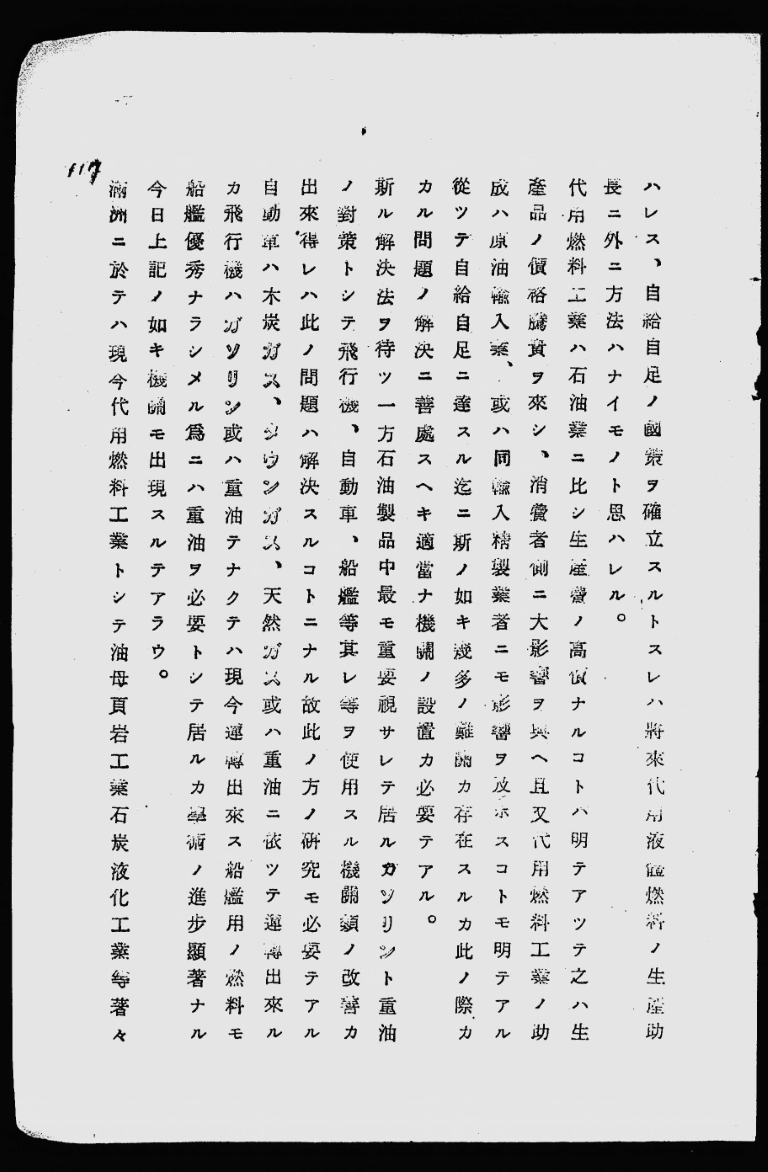 117
ハレス、自給自足ノ國策ヲ確立スルトスレハ將來代用液體燃料ノ生產助
長ニ外ニ方法ハナイモノト思ハレル。
代用燃料工業ハ石油業ニ比シ生產費ノ高價ナルコトハ明テアツテ之ハ生
產品ノ價格騰貴ヲ來シ、消費者側ニ大影響ヲ與ヘ且又代用燃料工業ノ助
成ハ原油輸入業、或ハ同輸入精製業者ニモ影響ヲ及ホスコトモ明テアル
從ツテ自給自足ニ達スル迄ニ斯ノ如キ幾多ノ難關カ存在スルカ此ノ際カ
カル問題ノ解決ニ善處スヘキ適當ナ機關ノ設置カ必要テアル。
斯ル解決法ヲ待ツ一方石油製品中最モ重要視サレテ居ルガソリント重油
ノ對策トシテ飛行機、自動車、船艦等其レ等ヲ使用スル機關類ノ改善カ
出來得レハ此ノ問題ハ解決スルコトニナル故此ノ方ノ研究モ必要テアル
自動車ハ木炭ガス、タウンガス、天然ガス或ハ重油ニ依ツテ運轉出來ル
カ飛行機ハガソリン或ハ重油テナクテハ現今運轉出來ス船艦用ノ燃料モ
船艦優秀ナラシメル爲ニハ重油ヲ必要トシテ居ルカ學術ノ進步顯著ナル
今日上記ノ如キ機關モ出現スルテアラウ。
滿洲ニ於テハ現今代用燃料工業トシテ油母頁岩工業石炭液化工業等著々